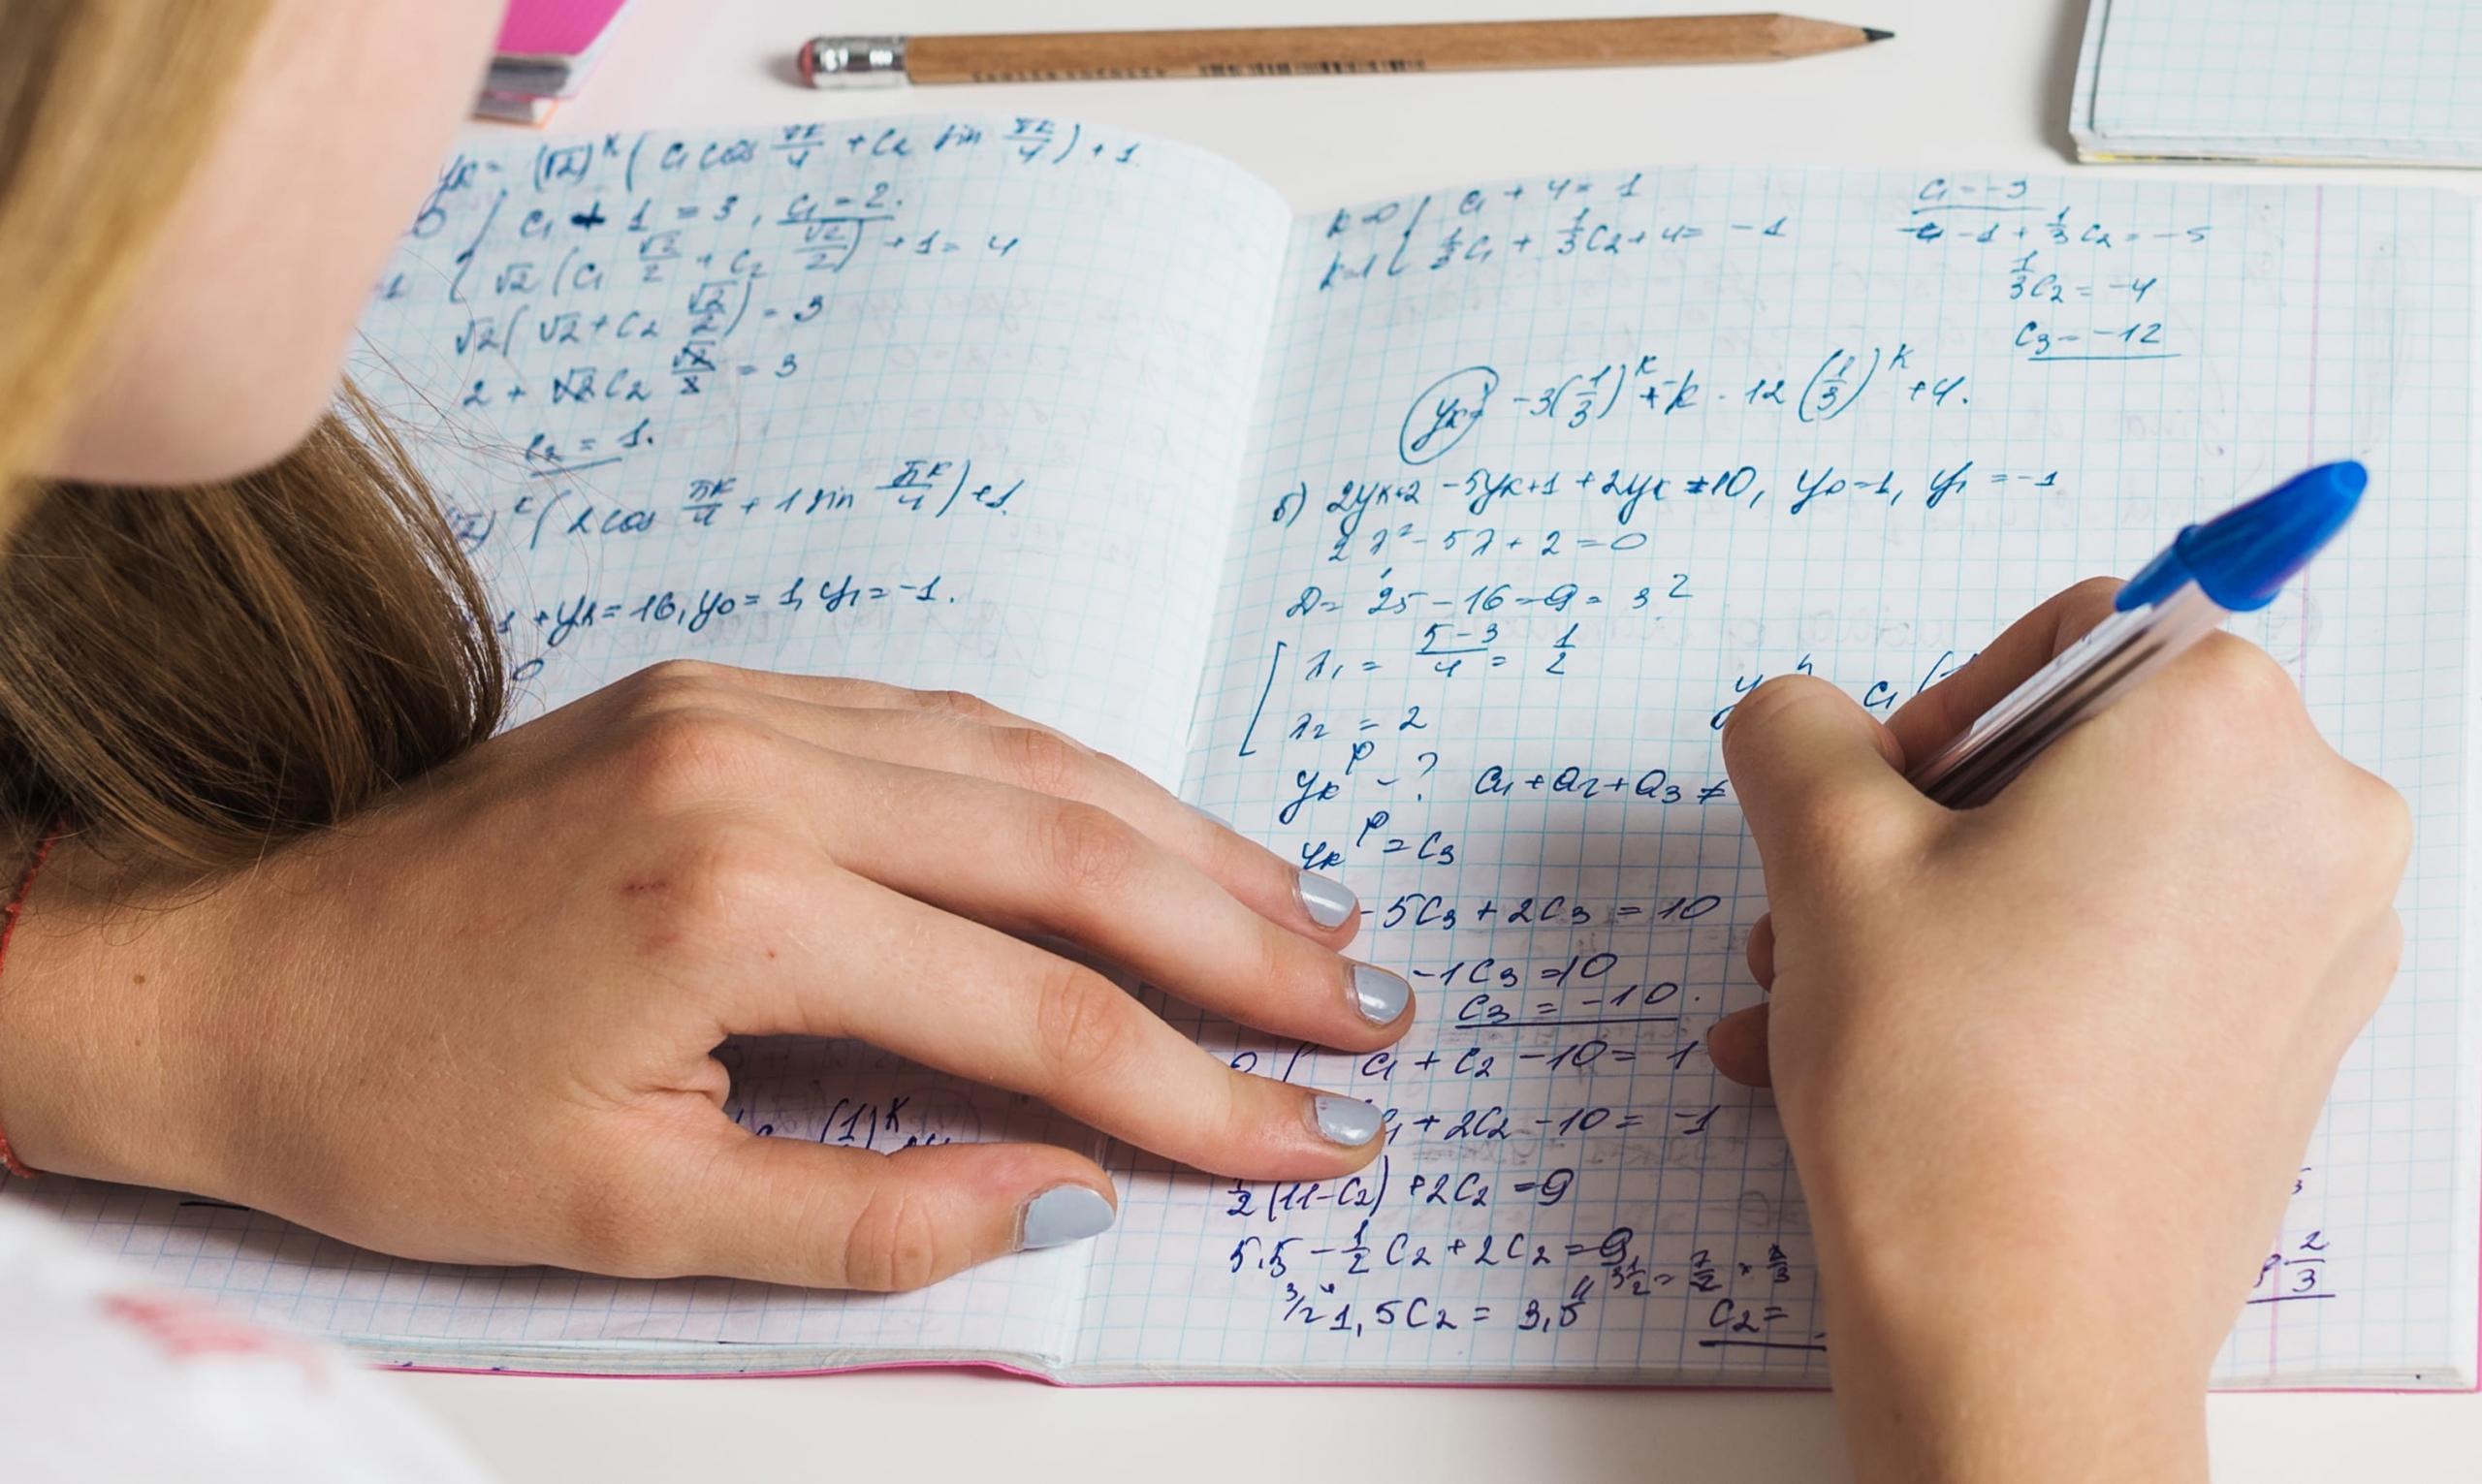 yk = (√2)^k ( C1 cos πk/4 + C2 sin πk/4 ) + 1
C1 + 1 = 3, C1 = 2.
√2 ( C1 √2/2 + C2 √2/2 ) + 1 = 4
√2 ( √2 + C2 √2/2 ) = 3
2 + √2 C2 √2/2 = 3
C2 = 1.
k ( 2 cos πk/4 + 1 sin πk/4 ) + 1.
+ yk = 16, y0 = 1, y1 = -1.
0
(1)^k
k=0 { C1 + 4 = 1
k=1 { 1/3 C1 + 1/3 C2 + 4 = -1
C1 = -3
-1 + 1/3 C2 = -5
1/3 C2 = -4
C3 = -12
yk = -3(1/3)^k + k · 12 (1/3)^k + 4.
б) 2yk+2 - 5yk+1 + 2yk = 10, y0 = 1, y1 = -1
2λ² - 5λ + 2 = 0
D = 25 - 16 = 9 = 3²
[ λ1 = (5-3)/4 = 1/2
λ2 = 2
y C1 (
yk^p - ? a1 + a2 + a3 ≠
yk^p = C3
- 5C3 + 2C3 = 10
-1C3 = 10
C3 = -10.
C1 + C2 - 10 = 1
+ 2C2 - 10 = -1
1/2 (11 - C2) + 2C2 = 9
5,5 - 1/2 C2 + 2C2 = 9
3 1/2 = 7/2 ·
3/2 1,5C2 = 3,5
C2 =
2/3